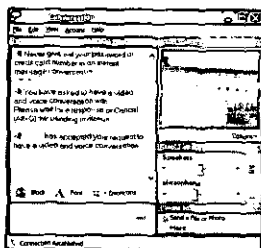 File Edit View Actions Help
Never give out your password or
credit card number in an instant
message conversation.
You have asked to have a video
and voice conversation with
Please wait for a response or Cancel
(Alt+Q) the pending invitation.
has accepted your request to
have a video and voice conversation.
Options
Speakers
Microphone
Block Font Emoticons
Send
Send a File or Photo
More
Connection established